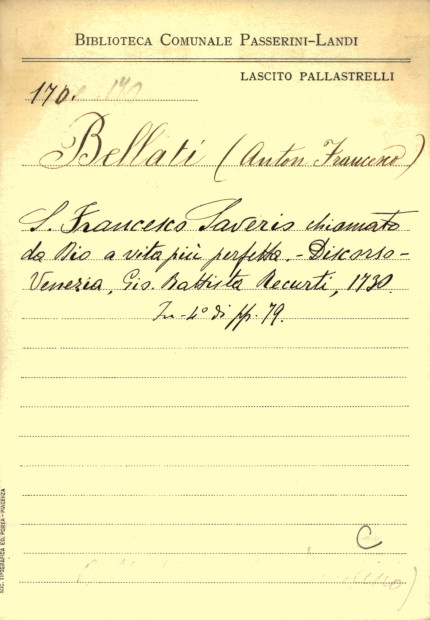 BIBLIOTECA COMUNALE PASSERINI-LANDI
LASCITO PALLASTRELLI
170. 170
Bellati (Anton Francesco)
S. Francesco Saverio chiamato
da Dio a vita più perfetta. - Discorso -
Venezia, Gio. Battista Recurti, 1730.
In-4° di pp. 79.
C
SOC. TIPOGRAFICA ED. PORTA - PIACENZA